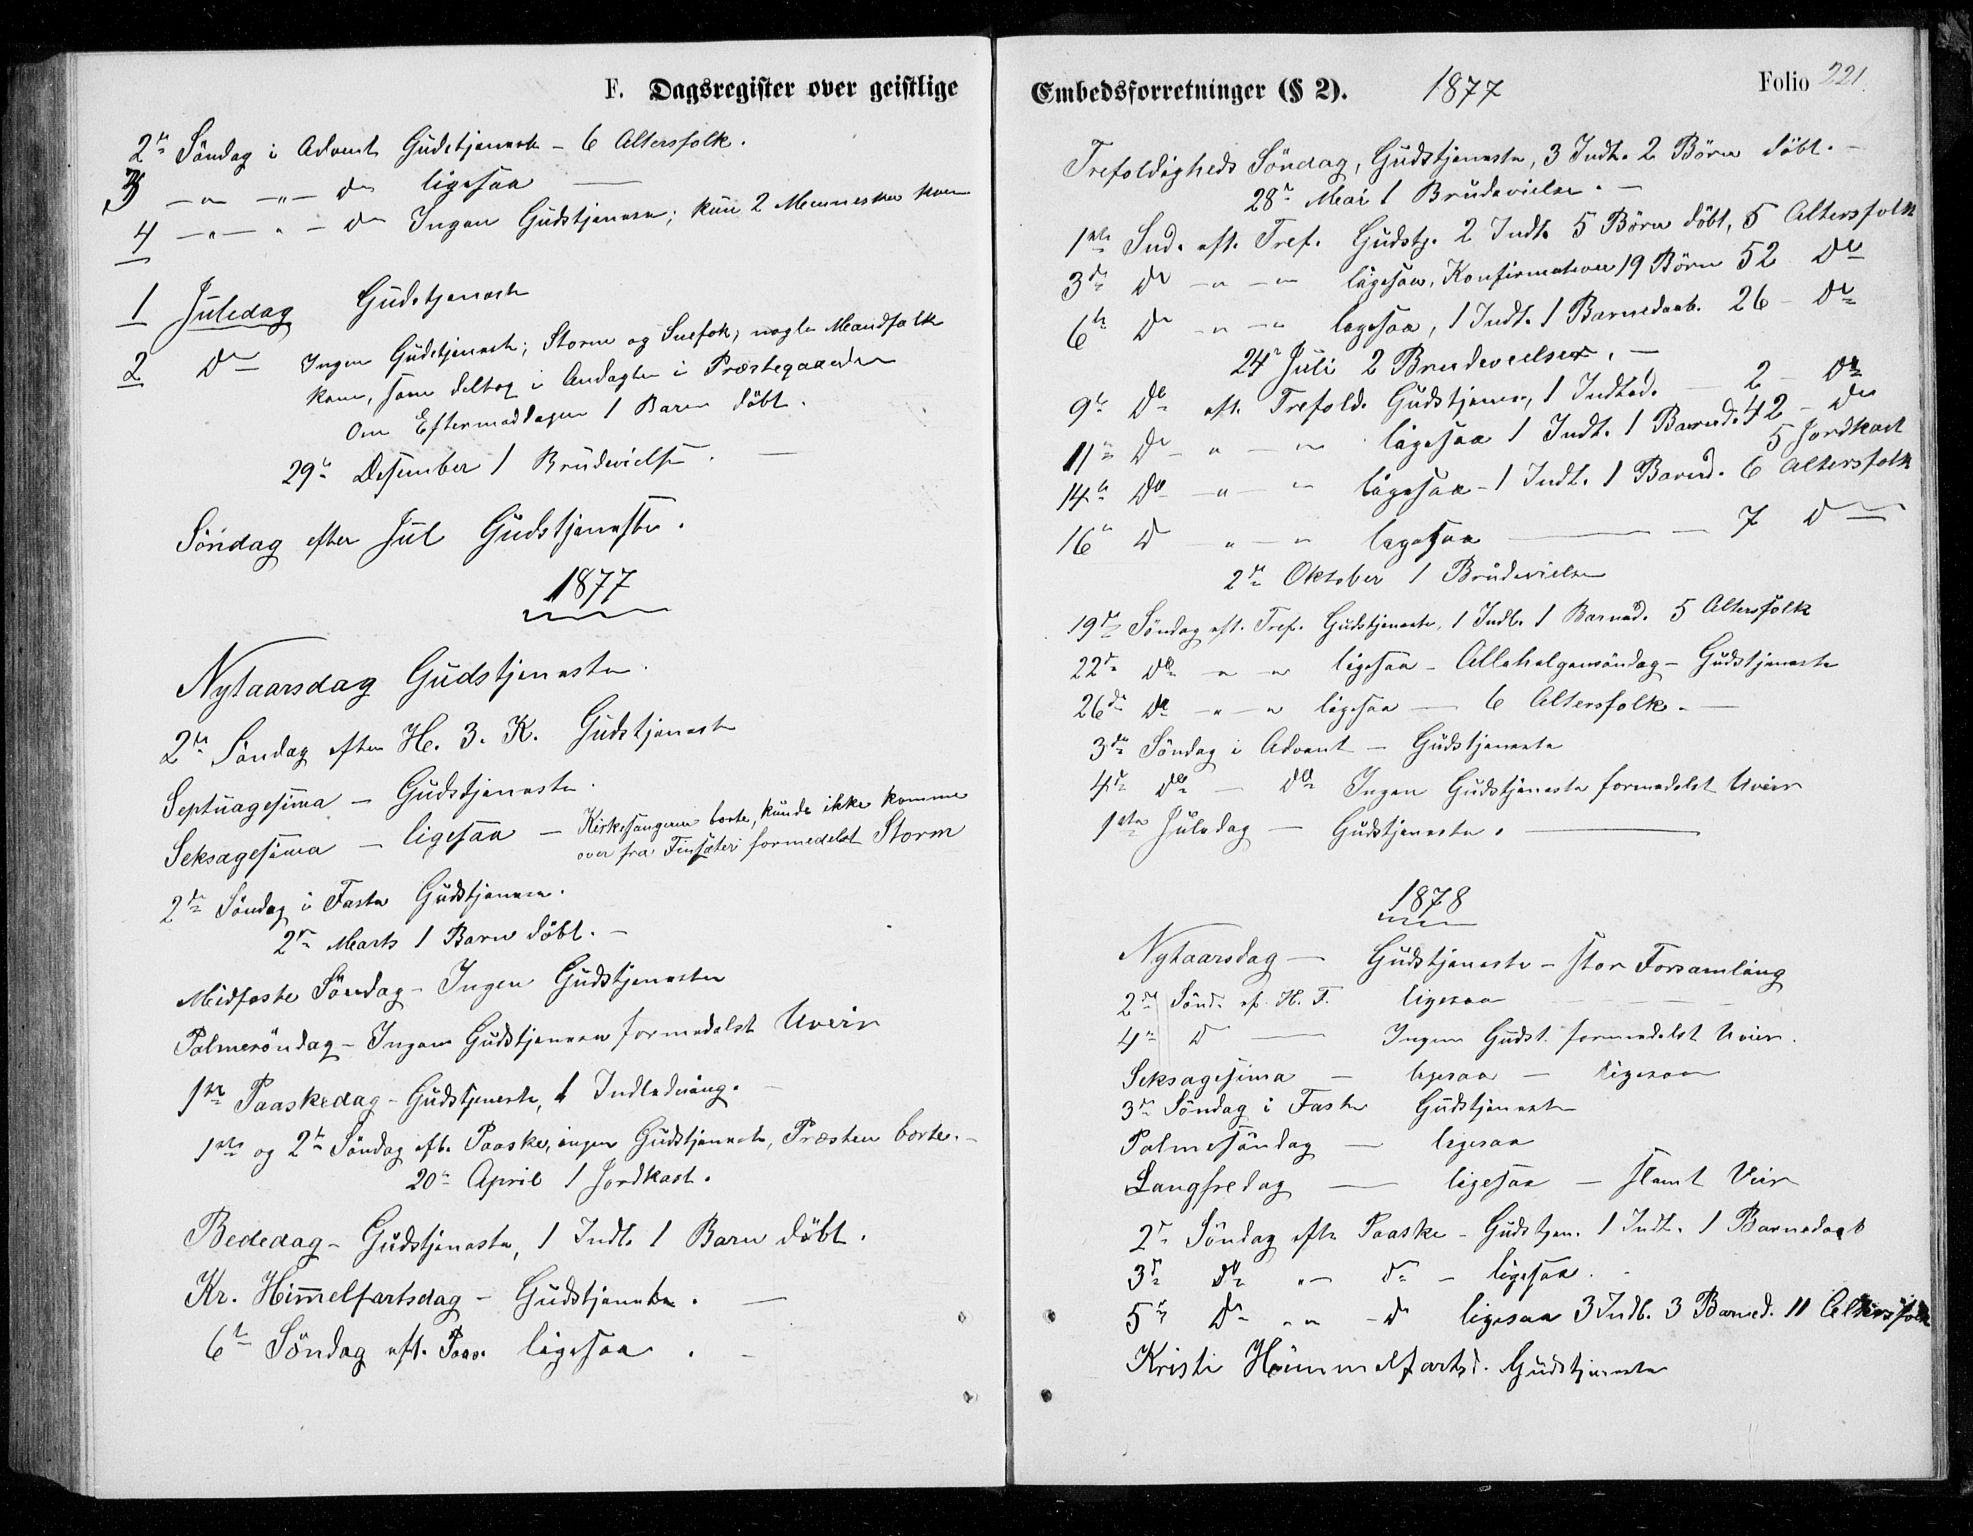 F. Dagsregister over geistlige
2den Söndag i Advent Gudstjeneste - 6 Altersfolk.
3 - " - " - Do ligesaa —
4 - " - " - Do Ingen Gudstjeneste; kun 2 Mennesker kom
1 Juledag Gudstjeneste
2 Do Ingen Gudstjeneste; Storm og Snefok; nogle Mandfolk
kom, som deltog i Andagten i Præstegaarden
Om Eftermiddagen 1 Barn döbt.
29de Desember 1 Brudevielse. —
Söndag efter Jul Gudstjeneste.
1877
Nytaarsdag Gudstjeneste.
2den Söndag efter H. 3. K. Gudstjeneste
Septuagesima - Gudstjeneste.
Seksagesima - ligesaa - Kirkesangeren borte, kunde ikke komme
over fra Finsæter formedelst Storm
2den Söndag i Faste Gudstjeneste.
2den Marts 1 Barn döbt. -
Midfaste Söndag - Ingen Gudstjeneste
Palmesöndag - Ingen Gudstjeneste formedelst Uveir
1ste Paaskedag - Gudstjeneste, 1 Indledning. -
1ste og 2den Söndag eft. Paaske, ingen Gudstjeneste, Præsten borte. -
20de April 1 Jordkast.
Bededag - Gudstjeneste, 1 Indl. 1 Barn döbt.
Kr. Himmelfartsdag - Gudstjeneste. —
6te Söndag eft. Paas. ligesaa. -
Embedsforretninger (§ 2). 1877 Folio 221.
Trefoldigheds Söndag, Gudstjeneste, 3 Indl. 2 Börn döbt. -
28de Mai 1 Brudevielse. -
1ste Snd. eft. Tref. Gudstj. 2 Indl. 5 Börn döbt, 5 Altersfolk
3die Do - " - " ligesaa, Konfirmation 19 Börn 52 Do
6te Do - " - " ligesaa, 1 Indl. 1 Barnedaab. 26 - Do
24de Juli 2 Brudevielser. -
9de Do eft. Trefold. Gudstjenes, 1 Indled. — 2 - Do
11te Do - " - " ligesaa 1 Indl. 1 Barned. 42 - Do
5 Jordkast
14de Do - " - " ligesaa - 1 Indl. 1 Barned. 6 Altersfolk
16de Do " - " ligesaa — 7 Do
2den Oktober 1 Brudevielse
19de Söndag eft. Tref. Gudstjeneste, 1 Indl. 1 Barned. 5 Altersfolk
22de Do - " - " ligesaa - Allehelgensöndag - Gudstjeneste
26de Do - " - " ligesaa — 6 Altersfolk. —
3die Söndag i Advent - Gudstjeneste
4de Do - Do Ingen Gudstjeneste formedelst Uveir
1ste Juledag - Gudstjeneste. —
1878
Nytaarsdag - Gudstjeneste - stor Forsamling
2den Sönd. ef. H. T. ligesaa
4de Do — Ingen Gudst. formedelst Uveir.
Seksagesima - ligesaa - ligesaa
3die Söndag i Faste Gudstjeneste
Palmesöndag — ligesaa
Langfredag — ligesaa - slemt Veir
2den Söndag eft. Paaske - Gudstjen. 1 Indl. 1 Barnedaab
3die Do " - Do - ligesaa.
5te Do " " - Do ligesaa 3 Indl. 3 Barned. 11 Altersfolk
Kristi Himmelfartsd. Gudstjeneste